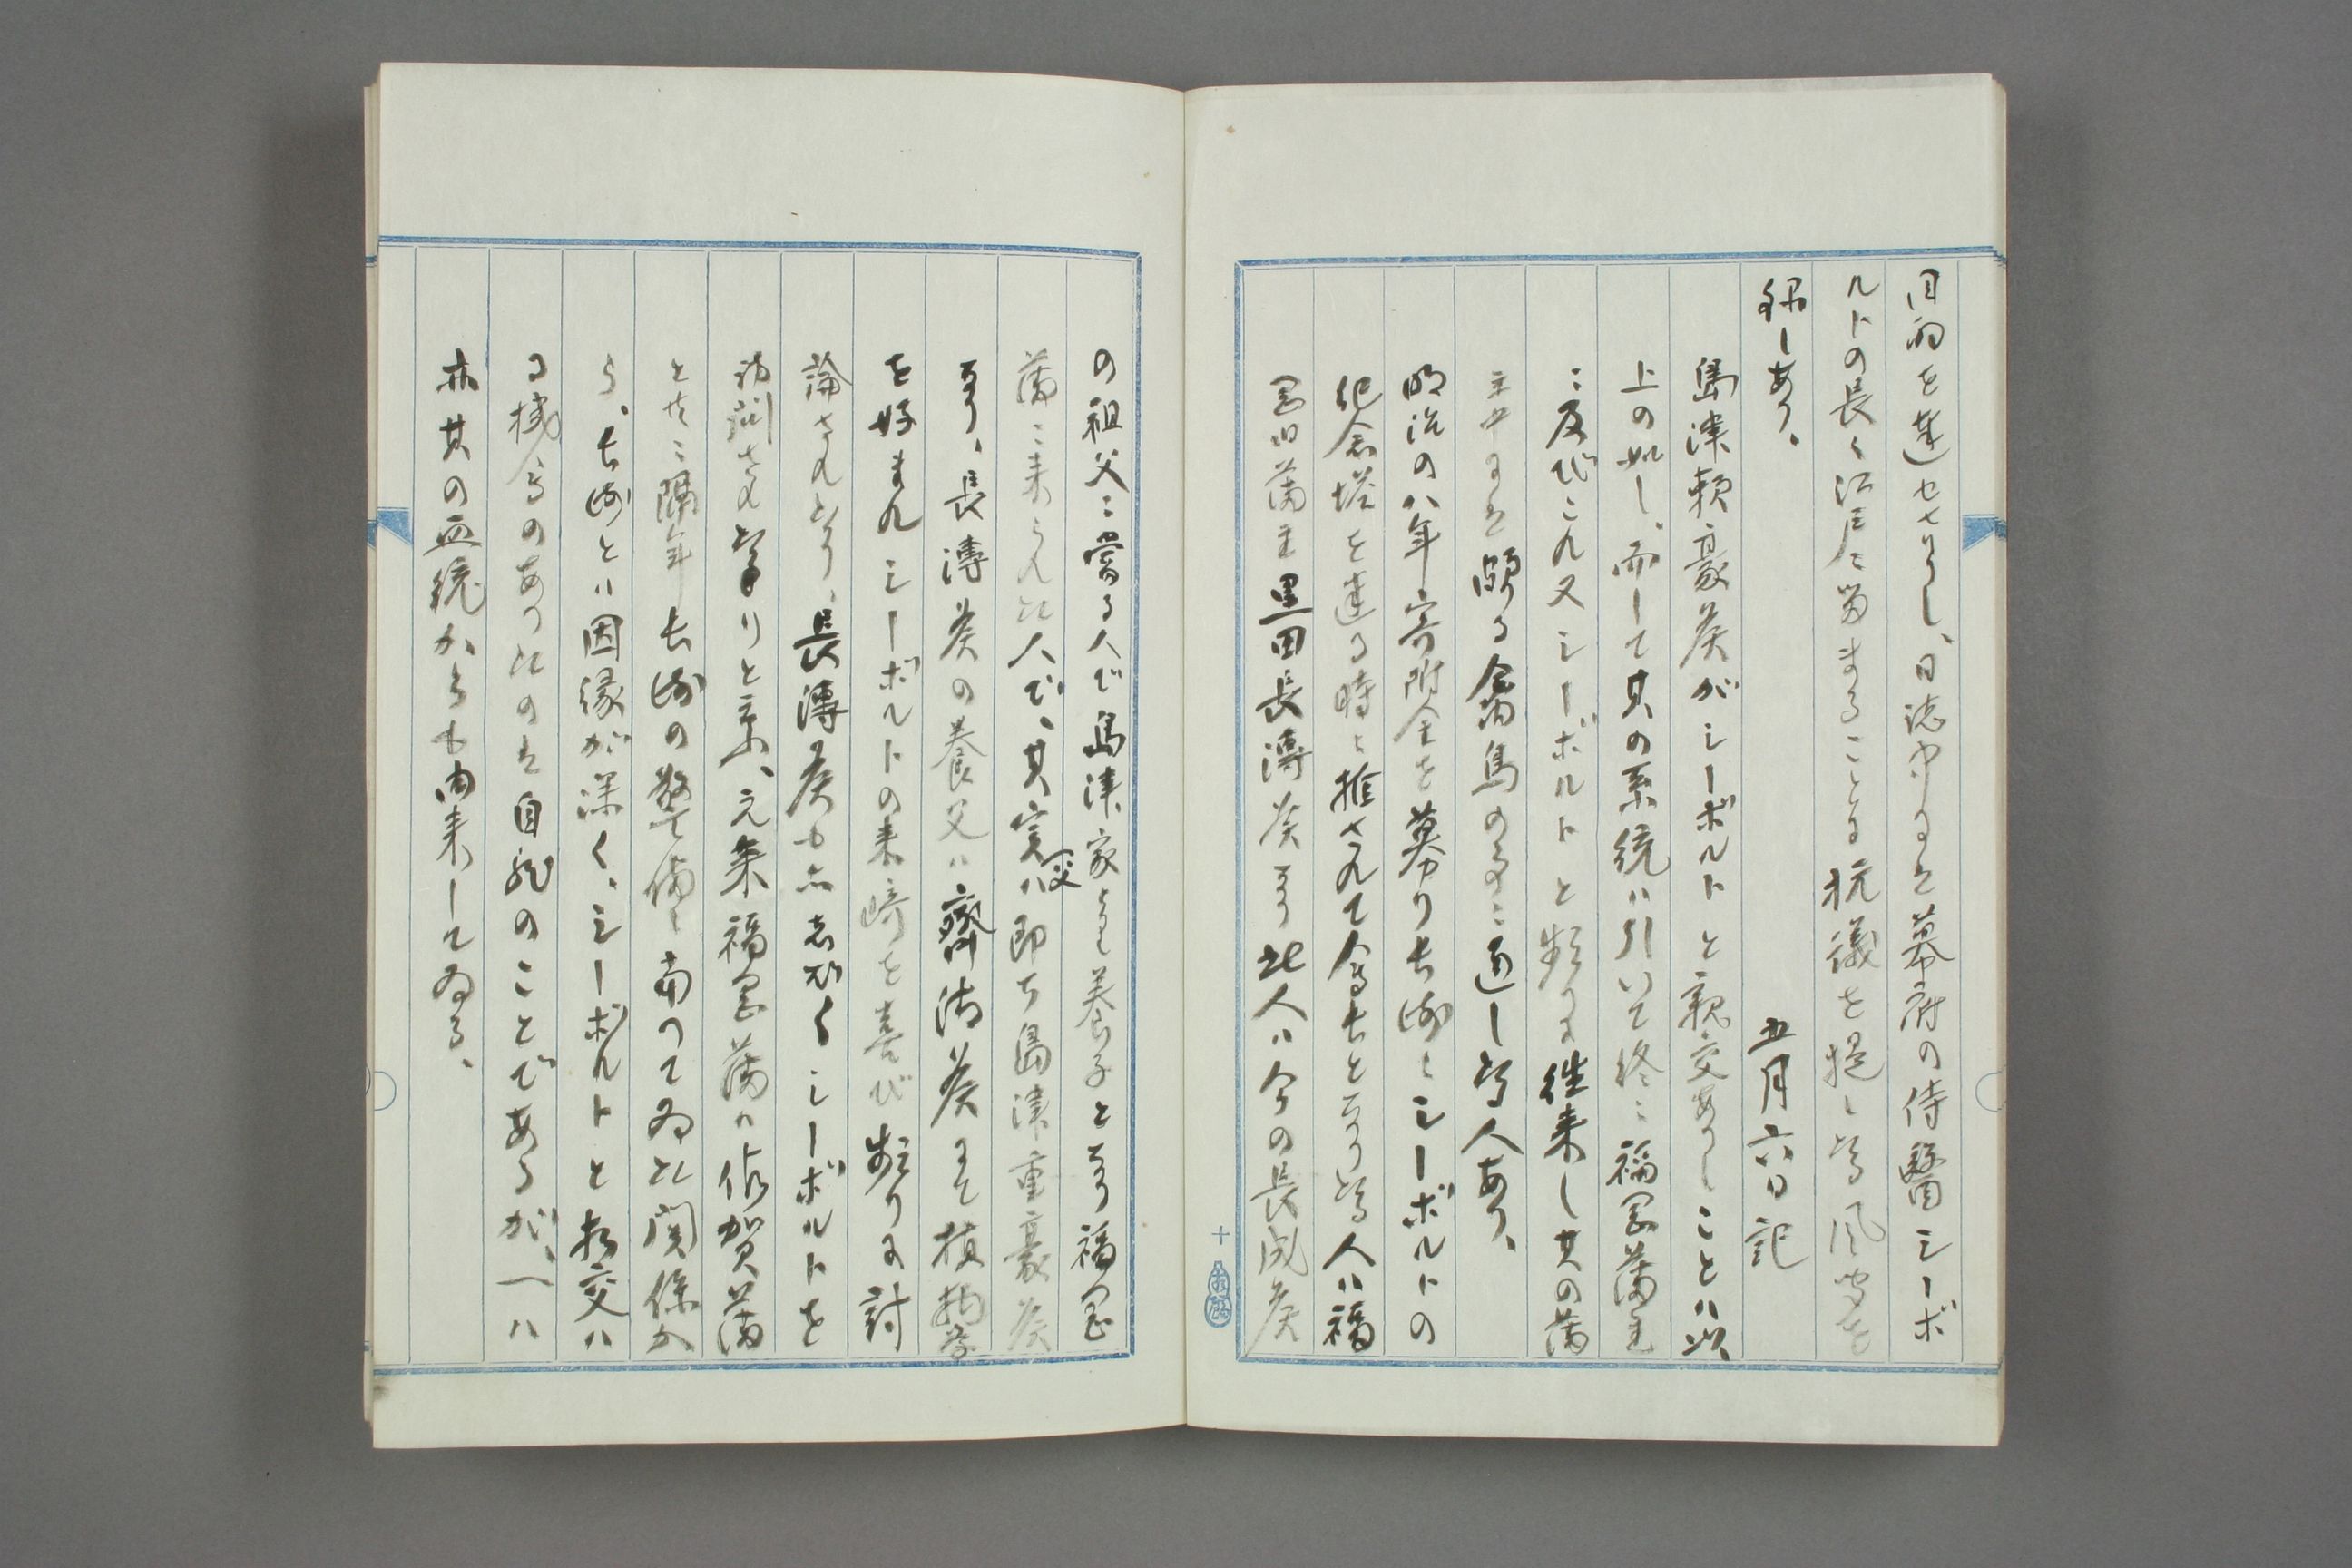 目的を達せりし、日誌中には幕府の侍醫シーボ
ルトの長く江戸に留まることに抗議を提し、風聞を
録しあり、
五月六日記
島津頼豪侯がシーボルトと親交ありしことハ以
上の如し、而して其の系統ハ引いて終ニ福岡藩主
ニ及びこれ又シーボルトと頻りに往来し其の藩
士中には頗る禽鳥のことニ通し人あり、
明治の八年寄附金を募り長崎にシーボルトの
紀念塔を建る時に推されて会長となり人ハ福
岡旧藩主黒田長溥侯なり此人ハ今の長成侯
の祖父ニ當る人で島津家より養子となり福岡
藩ニ来られた人で、其実父ハ即ち島津重豪侯
なり、長溥侯の養父ハ齊清侯にて植物学
を好まれシーボルトの来崎を喜び頻りに討
論されたり、長溥侯も亦志ばらくシーボルトを
訪問されたりと云ふ、元来福岡藩ハ佐賀藩
と共ニ隔年長崎の警備に当つてゐた関係か
ら、長崎とハ因縁が深く、シーボルトと相交ハ
る機会のあつたのは自然のことであるが、一ハ
亦其の血統からも由来してゐる、
十